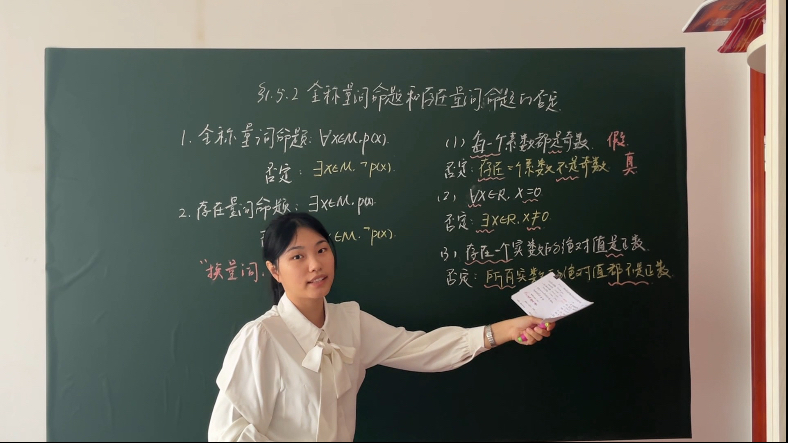 §1.5.2 全称量词命题和存在量词命题的否定
1. 全称量词命题: ∀x∈M, p(x).
否定: ∃x∈M, ¬p(x).
2. 存在量词命题: ∃x∈M, p(x)
∈M, ¬p(x).
"换量词,
(1) 每一个素数都是奇数. 假
否定: 存在一个素数不是奇数. 真
(2) ∀x∈R, x=0
否定: ∃x∈R, x≠0
(3) 存在一个实数的绝对值是正数.
否定: 所有实数 绝对值都不是正数.